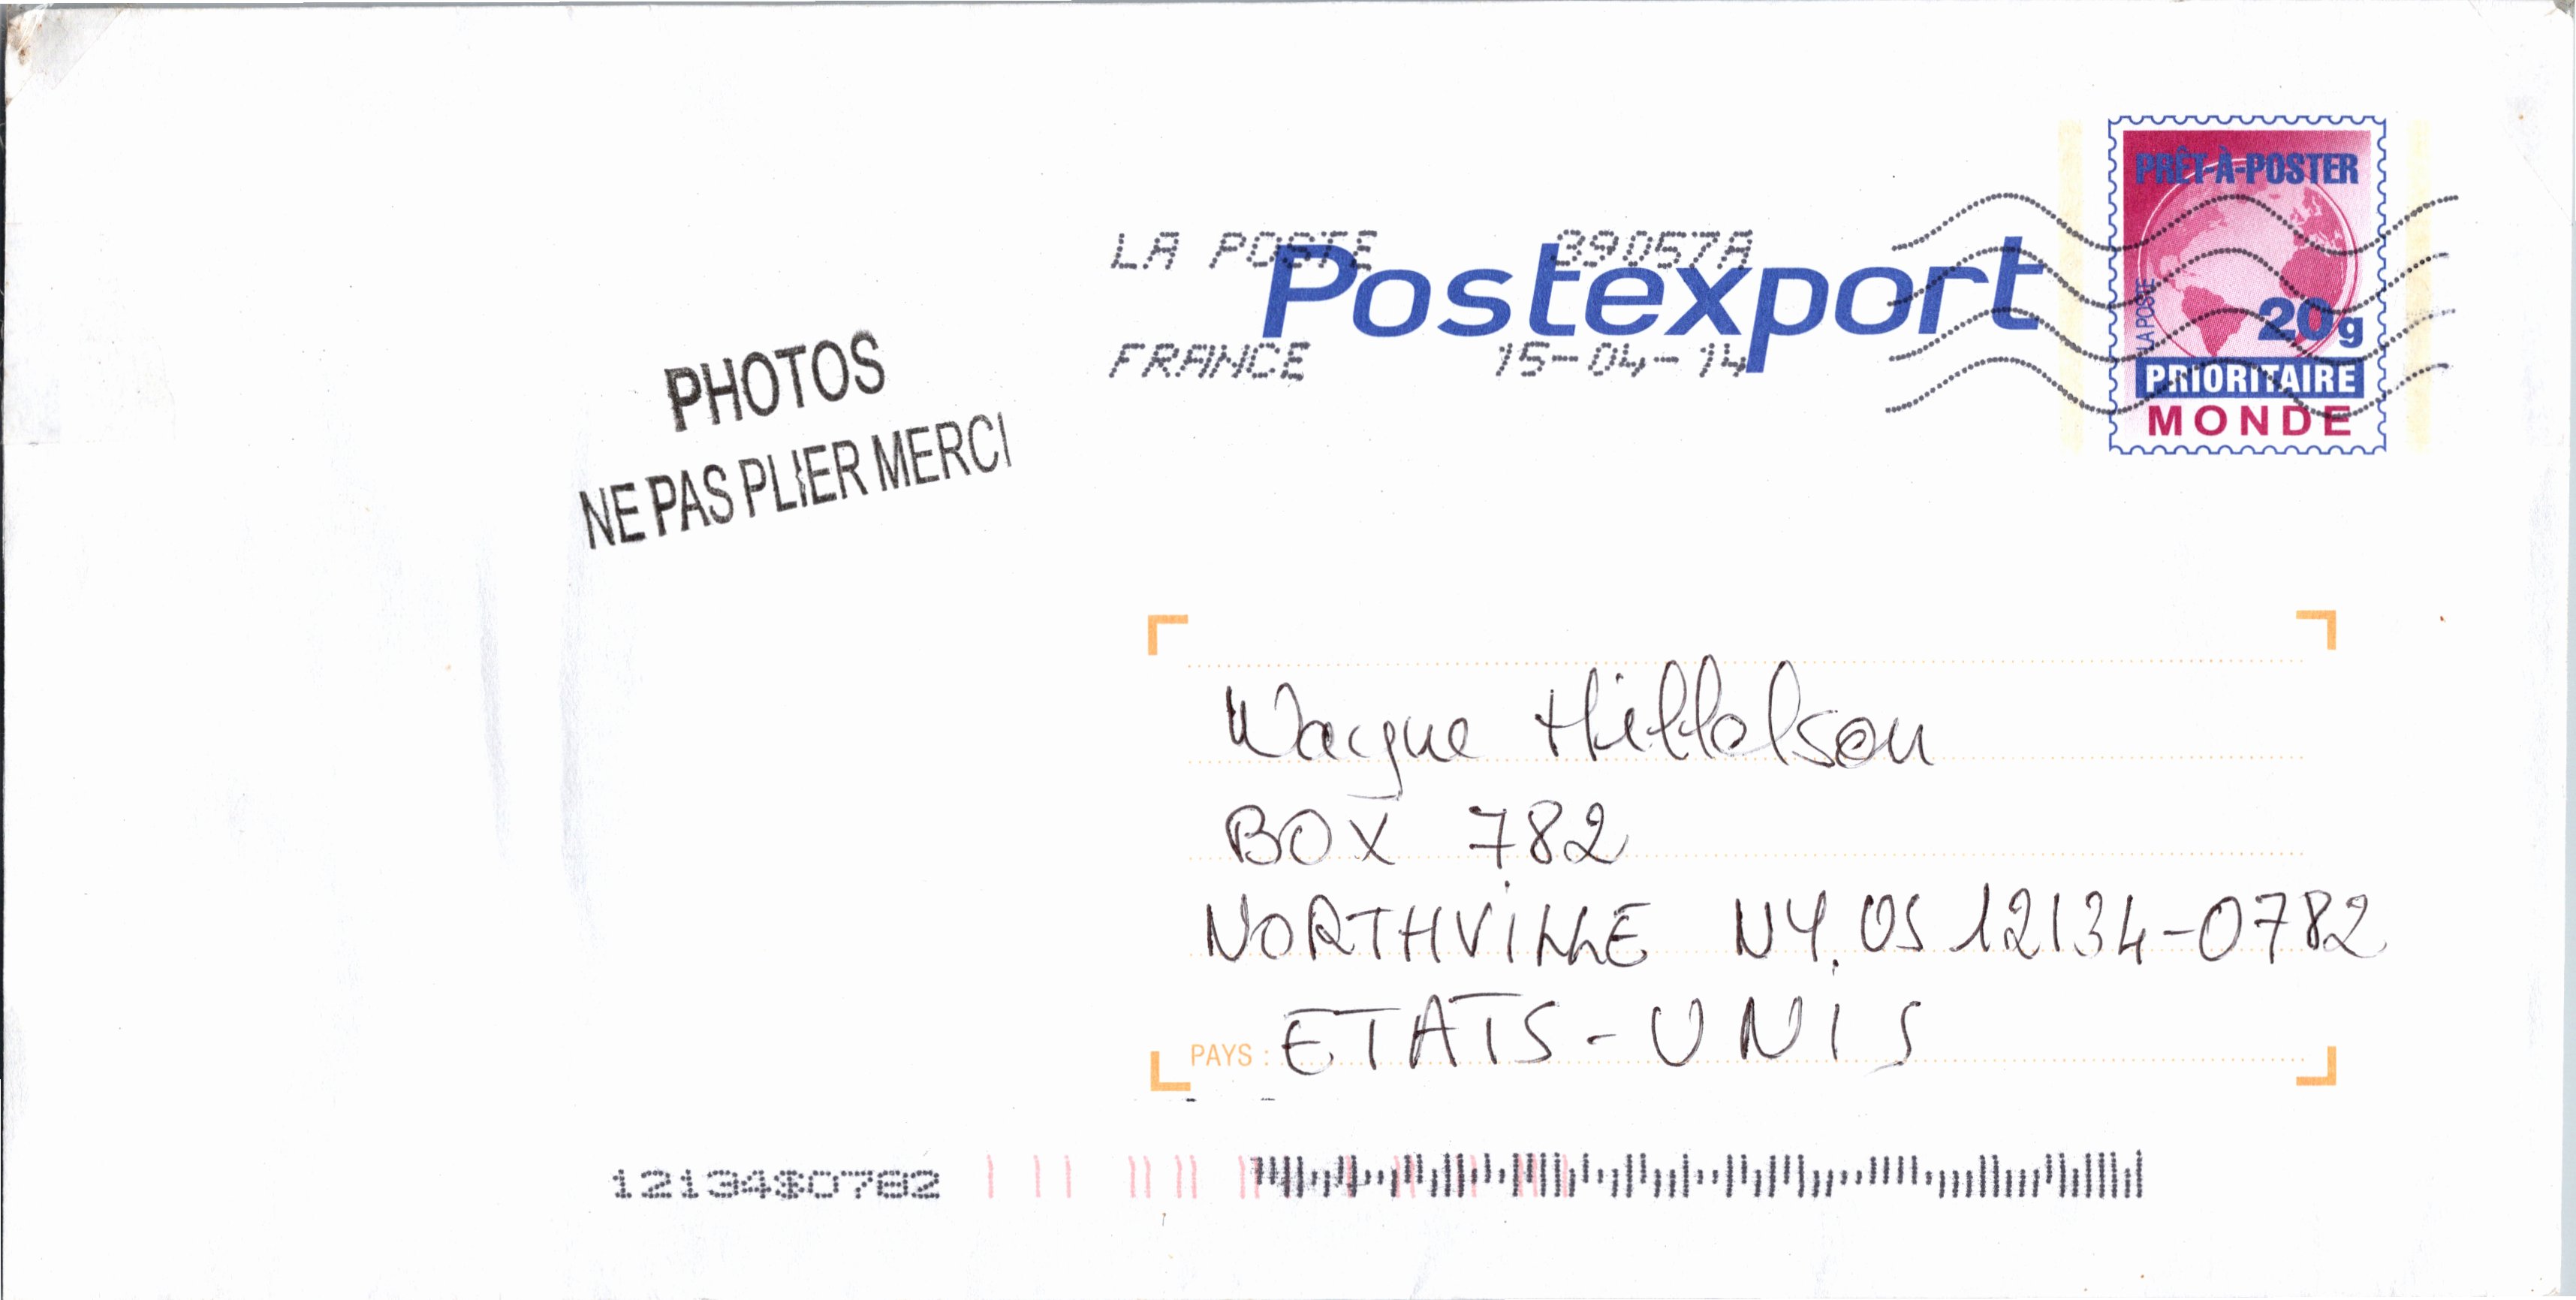 PRÊT-À-POSTER
LA POSTE 39057A
Postexport
FRANCE 15-04-14
LA POSTE
20g
PRIORITAIRE
MONDE
PHOTOS
NE PAS PLIER MERCI
Wayne
BOX 782
NORTHVILLE NY. US 12134-0782
PAYS : ETATS-UNIS
12134$0782